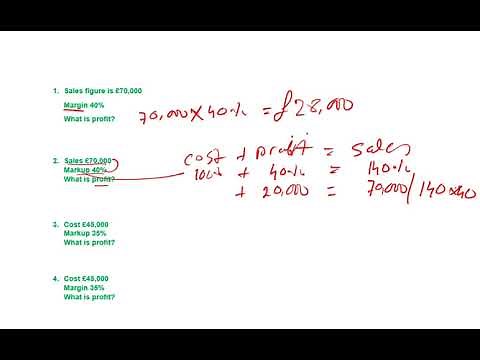 1. Sales figure is £70,000
Margin 40%
What is profit?
70,000 x 40% = £28,000
2. Sales £70,000
Markup 40%
What is profit?
cost + profit = sales
100% + 40% = 140%
+ 20,000 = 70,000/140x40
3. Cost £45,000
Markup 35%
What is profit?
4. Cost £45,000
Margin 35%
What is profit?